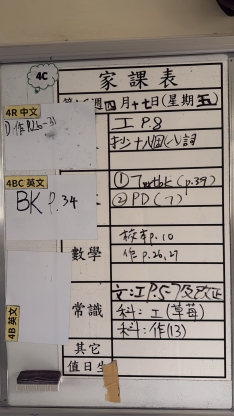 4C
家課表
四月十七日(星期五)
4R 中文
工 P.8
抄十八個(八)詞
4BC 英文
BK P.34
① Textbk (p.39)
② PD (7)
數學
校本p.10
作 p.26,27
4B英文
常識
文:工P.57及改正
科:工(草莓)
科:作(13)
其它
值日生